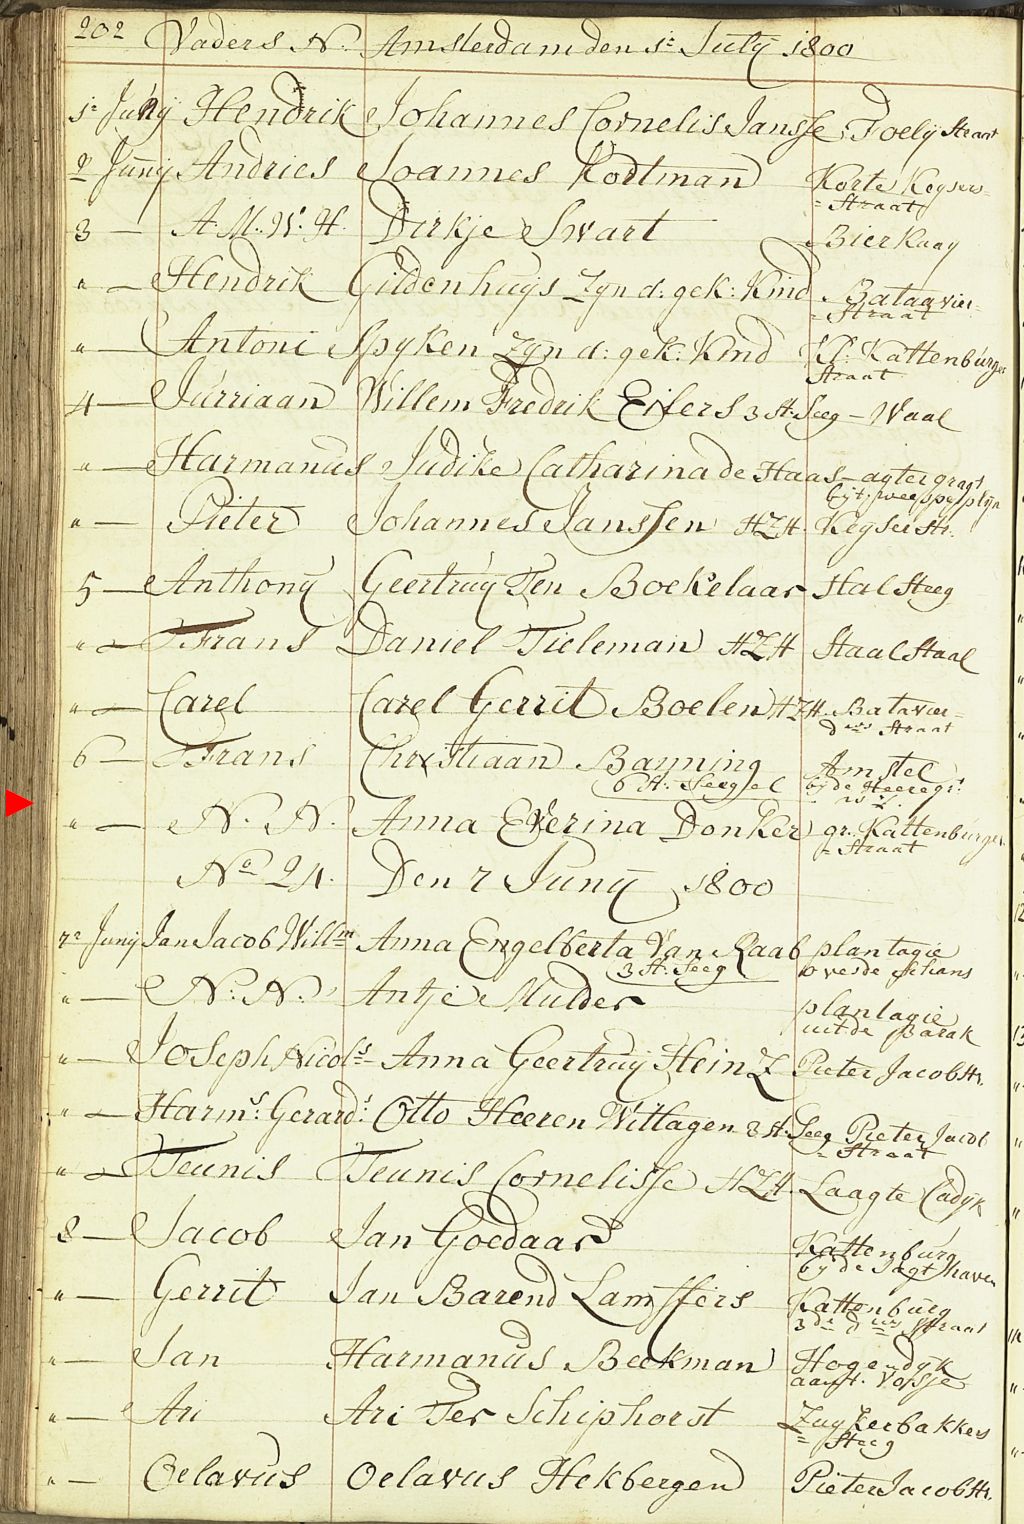 202 Vaders N. Amsterdam den 1e July 1800
1e Juny Hendrik Johannes Cornelis Jansse Foely Straat
2 Juny Andries Joannes Kodtman Korte Keysers
= Straat
3 — A. M. W. H. Dirkje Swart Bierkaay
" — Hendrik Gildenhuys Zyn d: gek: Kind Batavier
= Straat
" — Antoni Spyken Zyn d: gek: Kind Kl: Kattenburger
Straat
4 — Jurriaan Willem Fredrik Eifers 3 St: Seeg — Waal
" — Harmanus Judike Catharina de Haas — agter gragt
" — Pieter Johannes Janssen HZH. Keyser Str.
5 — Anthony Geertruy Ten Boekelaar Stal Steeg
" — Frans Daniel Tieleman HZH Staal Staal
" — Carel Carel Gerrit Boelen HZH. Batavier
dwrs Straat
6 — Frans Christiaan Banning Amstel
6 St: Seegel by de Heeregr:
" — N. N. Anna Everina Donker gr. Kattenburger
= Straat
No 24. Den 7 Juny 1800
7e Juny Jan Jacob Willm Anna Engelberta Van Raab plantagie
3 St: Seeg over de Schans
" — N. N. Antje Mulder plantagie
uit de Barak
" — Joseph Nicols Anna Geertruy Heinz Pieter Jacob Str.
" — Harms: Gerards: Otto Heeren Wittagen 3 St: Seeg Pieter Jacob
= Straat
" — Teunis Teunis Cornelisse HZH. Laagte Cadyk
8 — Jacob Jan Goedaard Kattenburg
by de Jagt haven
" — Gerrit Jan Barend Lamffers Kattenburg
3de dwrs Straat
" — Jan Harmanus Beekman Hogendyk
" — Ari Ari Ter Schiphorst Zuykerbakkers
= Steeg
" — Oelavus Oelavus Hekbergend Pieter Jacob Str.